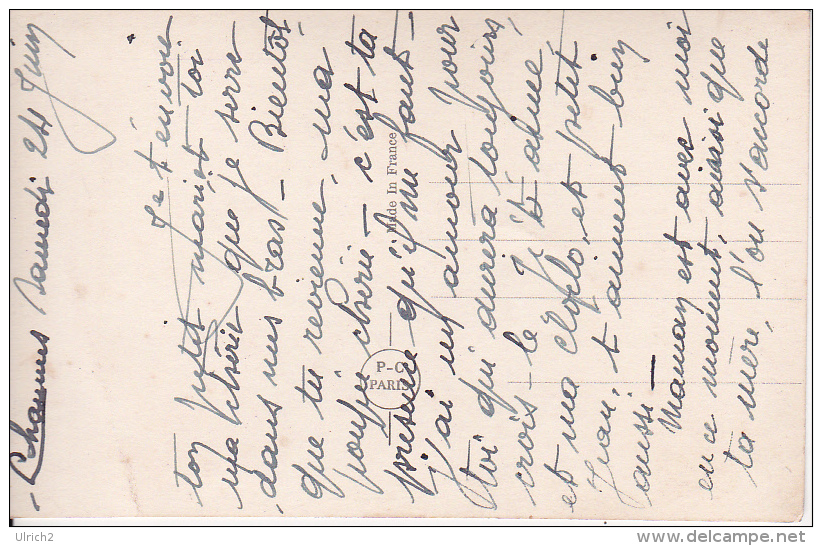 Chaunes Samedi 24 Juin
Je t'envoie
ton petit mariot toi
ma chérie que je serre
dans mes bras - Bientôt
que tu revienne, ma
poupée chérie - c'est ta
présence qu'il me faut -
J'ai un amour pour
toi qui durera toujours,
crois-le Je t'aime,
et ma Cloclo, et petit
Jean, t'aiment bien
aussi -
Maman est avec moi
en ce moment, ainsi que
ta mère, l'on s'accorde
Made In France
P-C
PARIS
Ulrich2
delcampe.net